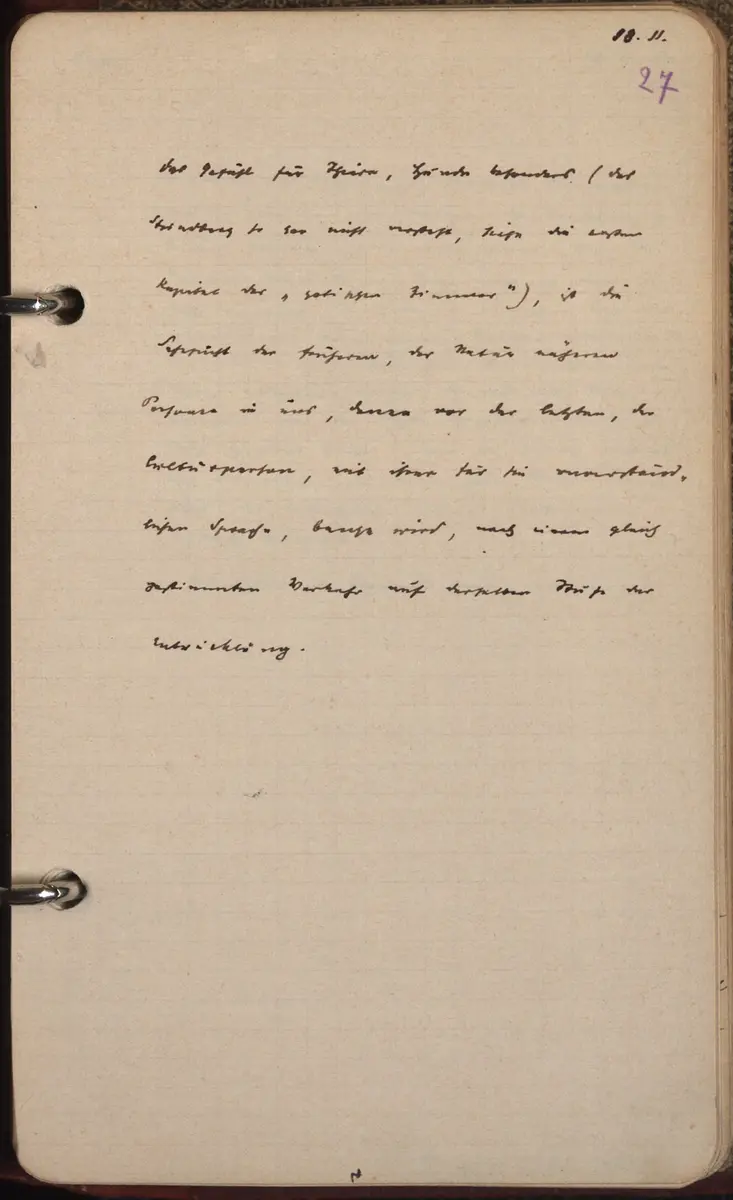 18. II.
27
das Gefühl für Thiere, Hunde besonders (das
Strindberg so gar nicht versteht, siehe die ersten
Kapitel der „gotischen Zimmer"), ist die
Sehnsucht der früheren, der Natur näheren
Personen in uns, denen vor der letzten, der
Culturperson, mit ihrer für sie unverständ-
lichen Sprache, bange wird, nach einem gleich
gestimmten Verkehr auf derselben Stufe der
Entwicklung.